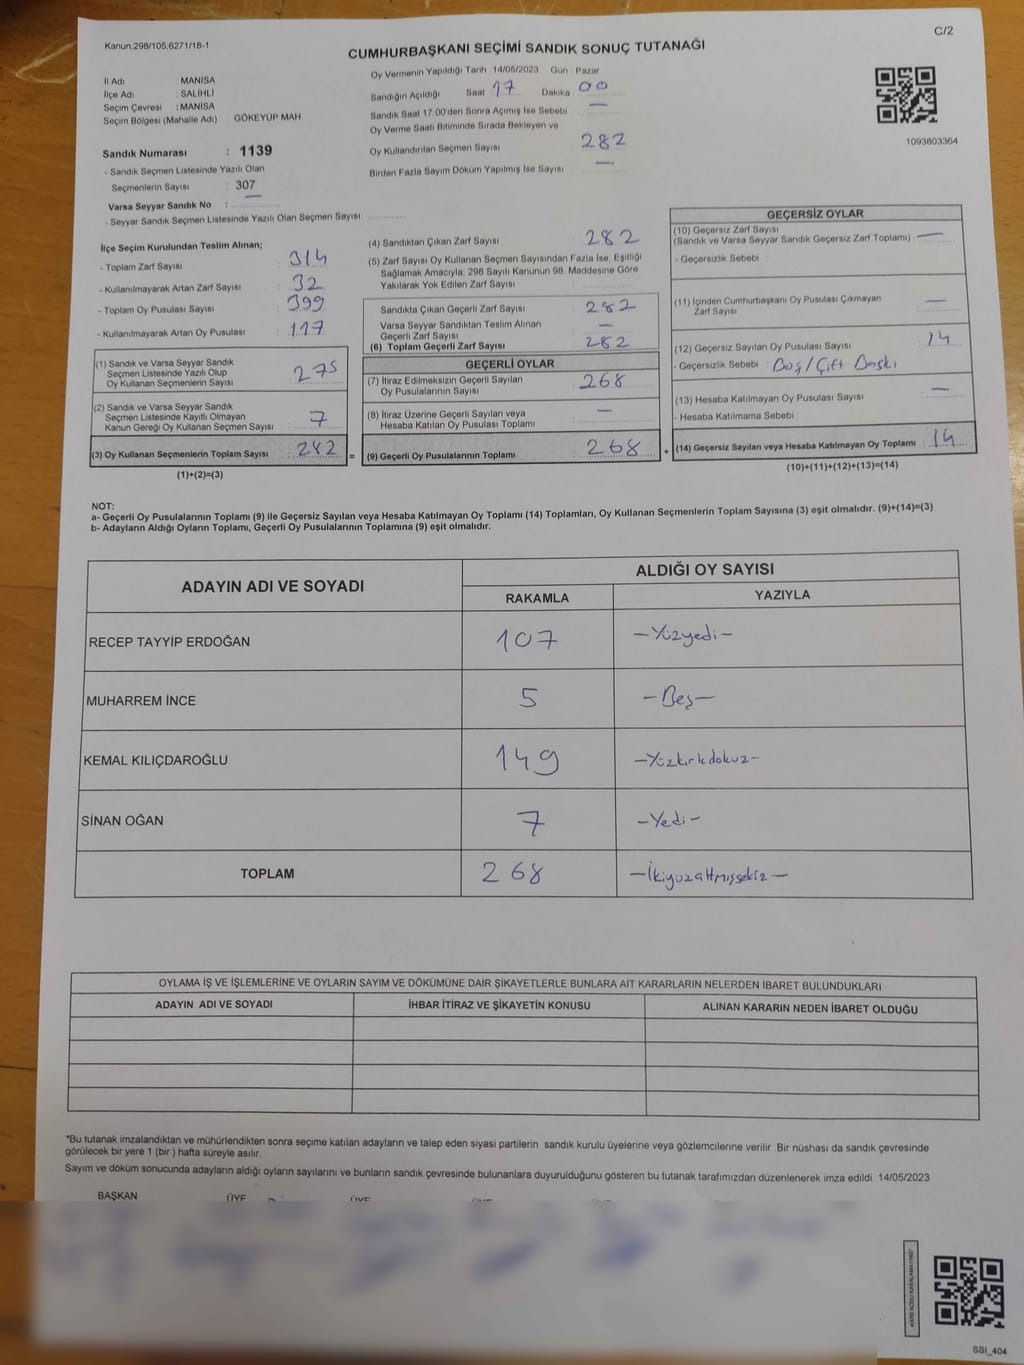 Kanun.298/105,6271/18-1
C/2
CUMHURBAŞKANI SEÇİMİ SANDIK SONUÇ TUTANAĞI
İl Adı : MANİSA
İlçe Adı : SALİHLİ
Seçim Çevresi : MANİSA
Seçim Bölgesi (Mahalle Adı) : GÖKEYÜP MAH.
Sandık Numarası : 1139
- Sandık Seçmen Listesinde Yazılı Olan
Seçmenlerin Sayısı : 307
Varsa Seyyar Sandık No : —
- Seyyar Sandık Seçmen Listesinde Yazılı Olan Seçmen Sayısı:
Oy Vermenin Yapıldığı Tarih : 14/05/2023 Gün : Pazar
Sandığın Açıldığı Saat 17 Dakika 00
Sandık Saat 17:00'den Sonra Açımış İse Sebebi —
Oy Verme Saati Bitiminde Sırada Bekleyen ve
Oy Kullandırılan Seçmen Sayısı 282
Birden Fazla Sayım Döküm Yapılmış İse Sayısı —
1093803364
İlçe Seçim Kurulundan Teslim Alınan;
- Toplam Zarf Sayısı : 314
- Kullanılmayarak Artan Zarf Sayısı : 32
- Toplam Oy Pusulası Sayısı : 399
- Kullanılmayarak Artan Oy Pusulası : 117
(1) Sandık ve Varsa Seyyar Sandık
Seçmen Listesinde Yazılı Olup
Oy Kullanan Seçmenlerin Sayısı : 275
(2) Sandık ve Varsa Seyyar Sandık
Seçmen Listesinde Kayıtlı Olmayan
Kanun Gereği Oy Kullanan Seçmen Sayısı : 7
(3) Oy Kullanan Seçmenlerin Toplam Sayısı : 282 =
(1)+(2)=(3)
(4) Sandıktan Çıkan Zarf Sayısı : 282
(5) Zarf Sayısı Oy Kullanan Seçmen Sayısından Fazla İse, Eşitliği
Sağlamak Amacıyla, 298 Sayılı Kanunun 98. Maddesine Göre
Yakılarak Yok Edilen Zarf Sayısı :
Sandıkta Çıkan Geçerli Zarf Sayısı : 282
Varsa Seyyar Sandıktan Teslim Alınan
Geçerli Zarf Sayısı : —
(6) Toplam Geçerli Zarf Sayısı : 282
GEÇERLİ OYLAR
(7) İtiraz Edilmeksizin Geçerli Sayılan
Oy Pusulalarının Sayısı : 268
(8) İtiraz Üzerine Geçerli Sayılan veya
Hesaba Katılan Oy Pusulası Toplamı : —
(9) Geçerli Oy Pusulalarının Toplamı : 268 +
GEÇERSİZ OYLAR
(10) Geçersiz Zarf Sayısı
(Sandık ve Varsa Seyyar Sandık Geçersiz Zarf Toplamı) : —
- Geçersizlik Sebebi :
(11) İçinden Cumhurbaşkanı Oy Pusulası Çıkmayan
Zarf Sayısı : —
(12) Geçersiz Sayılan Oy Pusulası Sayısı : 14
- Geçersizlik Sebebi : Boş/Çift Baskı
(13) Hesaba Katılmayan Oy Pusulası Sayısı : —
- Hesaba Katılmama Sebebi :
(14) Geçersiz Sayılan veya Hesaba Katılmayan Oy Toplamı : 14
(10)+(11)+(12)+(13)=(14)
NOT:
a- Geçerli Oy Pusulalarının Toplamı (9) ile Geçersiz Sayılan veya Hesaba Katılmayan Oy Toplamı (14) Toplamları, Oy Kullanan Seçmenlerin Toplam Sayısına (3) eşit olmalıdır. (9)+(14)=(3)
b- Adayların Aldığı Oyların Toplamı, Geçerli Oy Pusulalarının Toplamına (9) eşit olmalıdır.
ADAYIN ADI VE SOYADI
ALDIĞI OY SAYISI
RAKAMLA YAZIYLA
RECEP TAYYİP ERDOĞAN 107 -Yüzyedi-
MUHARREM İNCE 5 -Beş-
KEMAL KILIÇDAROĞLU 149 -Yüzkırkdokuz-
SİNAN OĞAN 7 -Yedi-
TOPLAM 268 -İkiyüzaltmışsekiz-
OYLAMA İŞ VE İŞLEMLERİNE VE OYLARIN SAYIM VE DÖKÜMÜNE DAİR ŞİKAYETLERLE BUNLARA AİT KARARLARIN NELERDEN İBARET BULUNDUKLARI
ADAYIN ADI VE SOYADI İHBAR İTİRAZ VE ŞİKAYETİN KONUSU ALINAN KARARIN NEDEN İBARET OLDUĞU
*Bu tutanak imzalandıktan ve mühürlendikten sonra seçime katılan adayların ve talep eden siyasi partilerin sandık kurulu üyelerine veya gözlemcilerine verilir. Bir nüshası da sandık çevresinde
görülecek bir yere 1 (bir) hafta süreyle asılır.
Sayım ve döküm sonucunda adayların aldığı oyların sayılarını ve bunların sandık çevresinde bulunanlara duyurulduğunu gösteren bu tutanak tarafımızdan düzenlenerek imza edildi. 14/05/2023
BAŞKAN ÜYE ÜYE
SSI_404